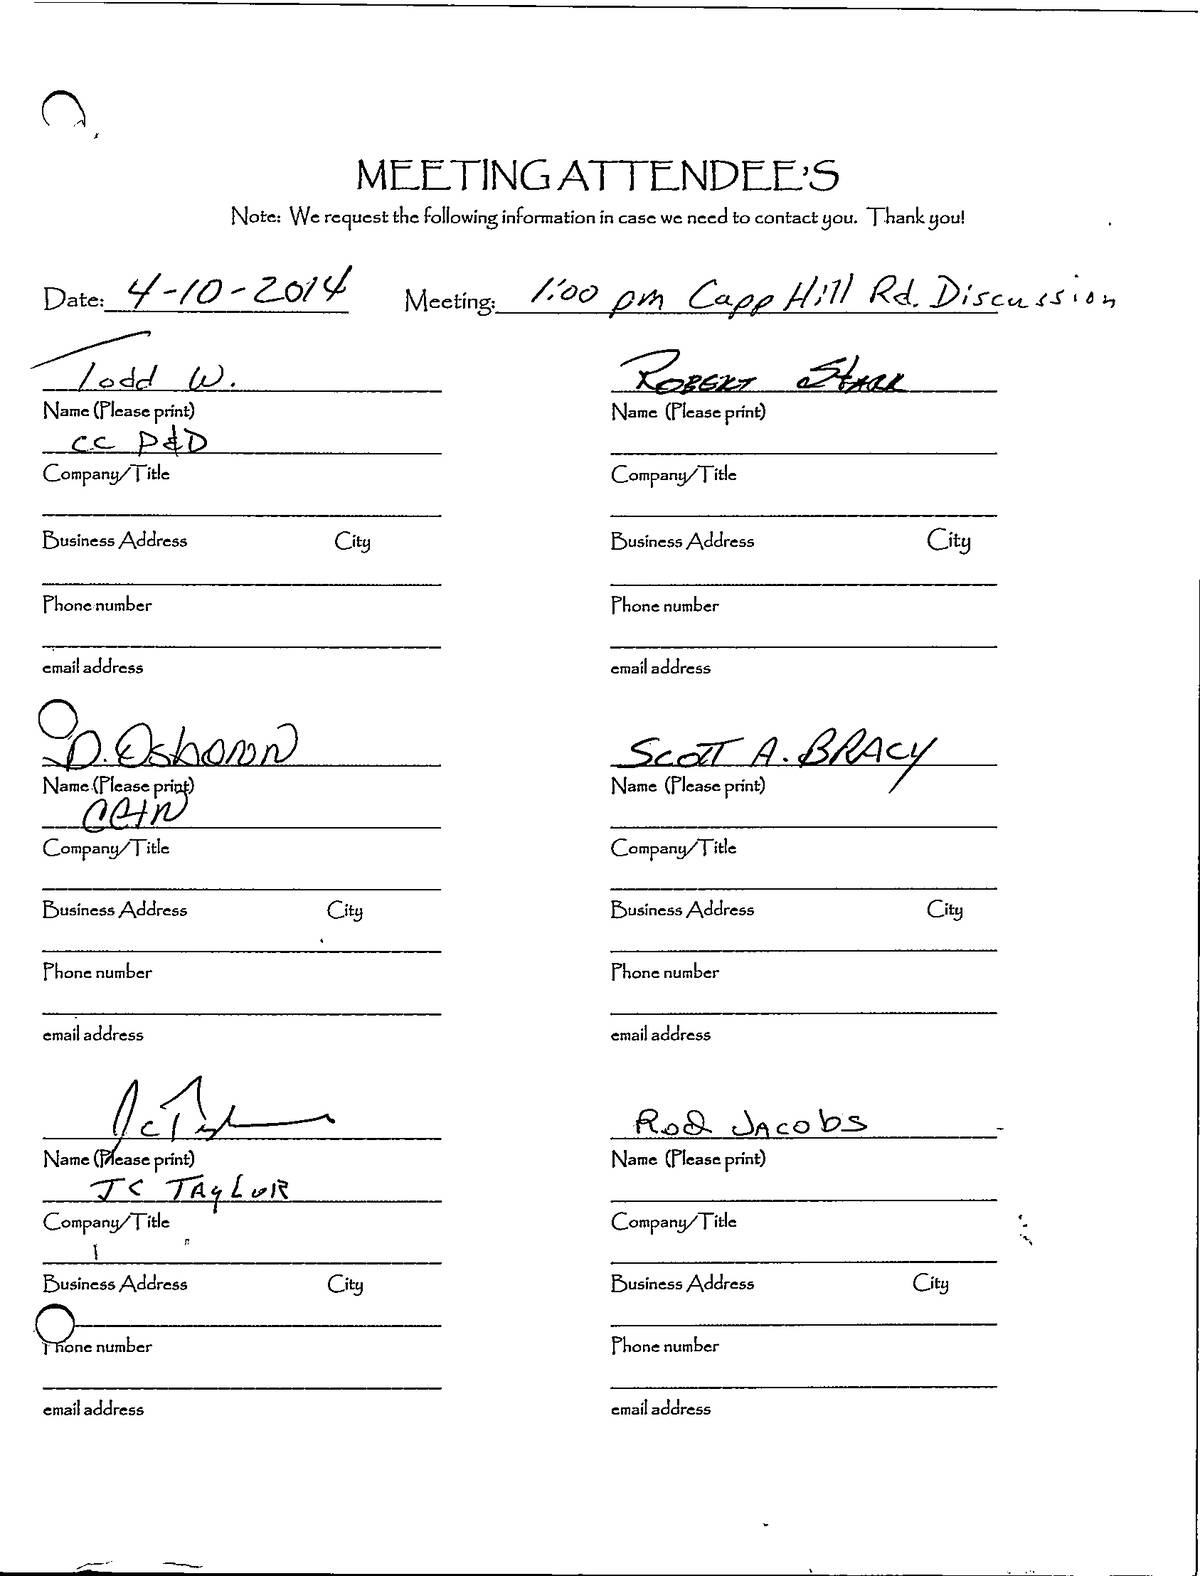 MEETING ATTENDEE'S
Note: We request the following information in case we need to contact you. Thank you!
Date: 4-10-2014 Meeting: 1:00 pm Capp Hill Rd. Discussion
Todd W.
Name (Please print)
CC P&D
Company/Title
Business Address City
Phone number
email address
Robert Starr
Name (Please print)
Company/Title
Business Address City
Phone number
email address
D. Osborn
Name (Please print)
Company/Title
Business Address City
Phone number
email address
Scott A. BRACY
Name (Please print)
Company/Title
Business Address City
Phone number
email address
JC
Name (Please print)
JC TAYLOR
Company/Title
Business Address City
Phone number
email address
Rod Jacobs
Name (Please print)
Company/Title
Business Address City
Phone number
email address